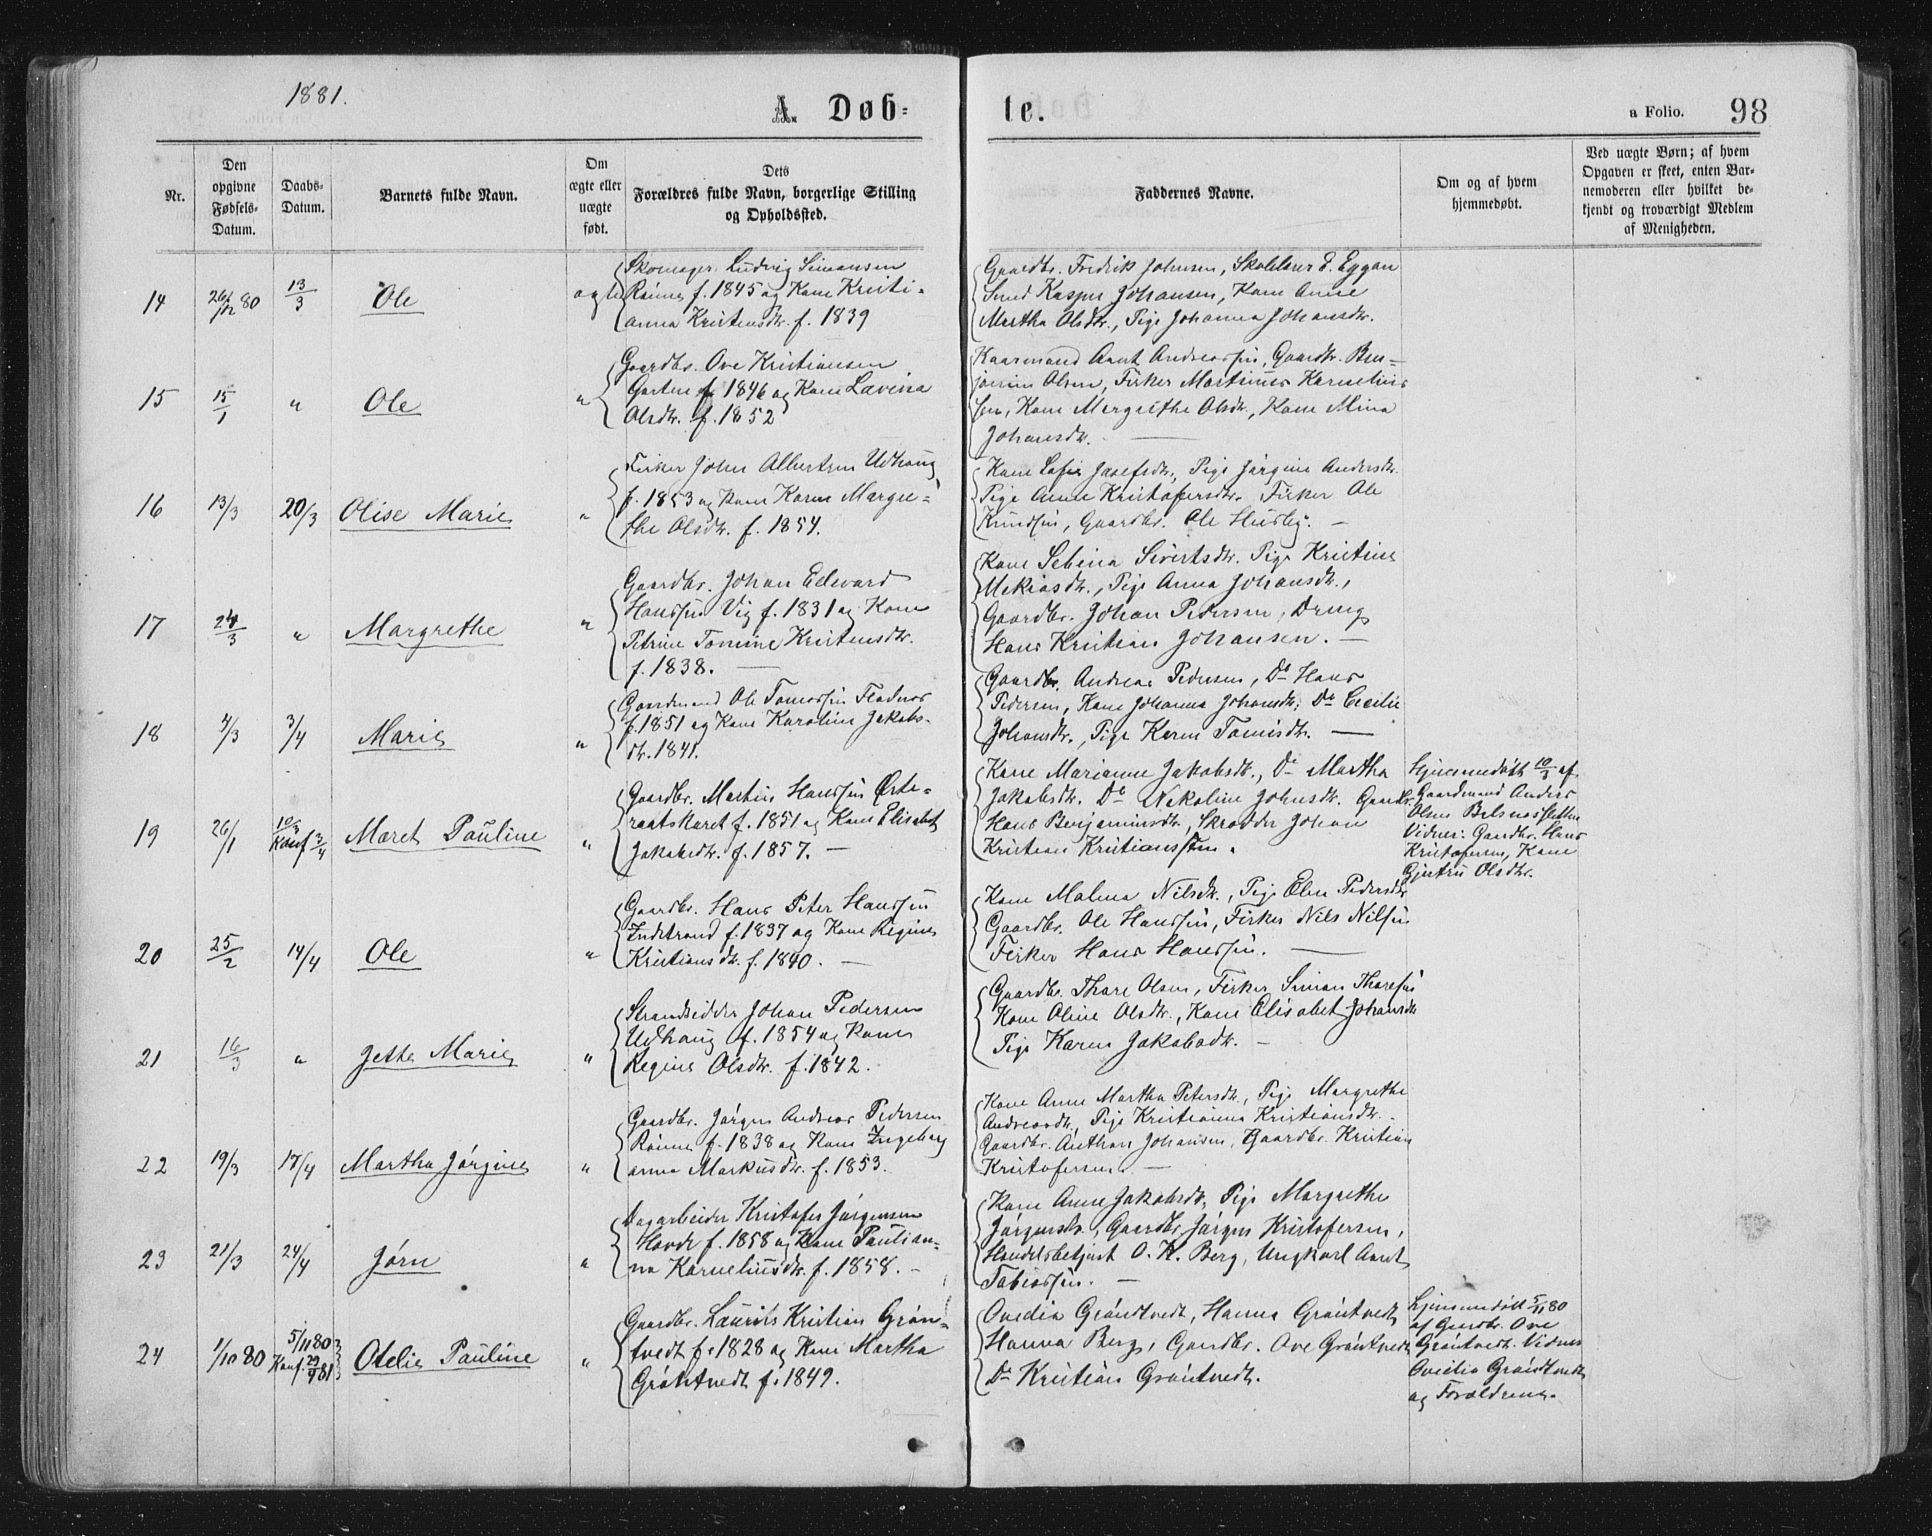 1881.
A. Døb=
te.
a Folio.
98
Nr.
Den opgivne Fødsels-Datum.
Daabs-Datum.
Barnets fulde Navn.
Om ægte eller uægte født.
Dets Forældres fulde Navn, borgerlige Stilling og Opholdssted.
Faddernes Navne.
Om og af hvem hjemmedøbt.
Ved uægte Børn; af hvem Opgaven er skeet, enten Barnemoderen eller hvilket bekjendt og troværdigt Medlem af Menigheden.
14
26/12 80
13/3
Ole
ægte
Skomager Ludvig Simonsen
Rønne f. 1845 og Kone Kristi-
anna Kristensdtr. f. 1839
Gaardbr. Fredrik Johnsen, Skolelærer E. Eggan
Smed Kasper Johansen, Kone Anne
Martha Olsdtr., Pige Johanna Johansdtr.
15
15/1
"
Ole
"
Gaardbr. Ove Kristiansen
Garten f. 1846 og Kone Lavina
Olsdtr. f. 1852
Kaarmand Arnt Andreassen, Gaardbr. Ben-
jamin Olsen, Fisker Martinus Kornelius
sen, Kone Margrethe Olsdtr., Kone Mina
Johansdtr.
16
13/3
20/3
Olise Marie
"
Fisker John Albertsen Udhaug
f. 1853 og Kone Karen Margre-
the Olsdtr. f. 1854.
Kone Sofie Josefsdtr., Pige Jørgine Andersdtr.
Pige Anne Kristofersdtr. Fisker Ole
Knudsen, Gaardbr. Ole Husby. —
17
24/3
"
Margrethe
"
Gaardbr. Johan Edvard
Hanssen Vig f. 1831 og Kone
Petrine Tomine Kristensdtr.
f. 1838. —
Kone Sebina Sivertsdtr. Pige Kristine
Mekiasdtr., Pige Anna Johansdtr.,
Gaardbr. Johan Pedersen, Dreng
Hans Kristian Johansen. —
18
4/3
3/4
Marie
"
Gaardmand Ole Tomassen Fladnes
f. 1851 og Kone Karoline Jakobs-
dtr. 1841.
Gaardbr. Andreas Pedersen, Do Hans
Pedersen, Kone Johanna Johansdtr., Do Cecilie
Johansdtr., Pige Karen Tomisdtr. —
19
26/1
10/3 Konf 3/4
Maret Pauline
"
Gaardbr. Martin Hanssen Øste-
raatskaret f. 1851 og Kone Elisabet
Jakobsdtr. f. 1857. —
Kone Marianne Jakobsdtr., Do Martha
Jakobsdtr. Do Nakoline Johnsdtr. Gaardbr.
Hans Benjaminsdtr, Skrædder Johan
Kristian Kristianssen.
Hjemmedøbt 10/3 af
Gaardmand Anders
Olsen Belsnesletten
Vidner: Gaardbr. Hans
Kristofersen, Kone
Gjertru Olsdtr.
20
25/2
14/4
Ole
"
Gaardbr. Hans Peter Hanssen
Indstrand f. 1837 og Kone Regine
Kristiansdtr. f. 1840. —
Kone Malena Nilsdtr., Pige Elen Pedersdtr.
Gaardbr. Ole Hanssen, Fisker Nils Nilsen
Fisker Hans Hanssen. —
21
16/3
"
Jette Marie
"
Strandsidder Johan Pedersen
Udhaug f. 1854 og Kone
Regine Olsdtr. f. 1842.
Gaardbr. Thore Olsen, Fisker Simon Thoresen
Kone Oline Olsdtr., Kone Elisabet Johansdtr
Pige Karen Jakobsdtr. —
22
19/3
17/4
Martha Jørgine
"
Gaardbr. Jørgen Andreas Pedersen
Rønne f. 1838 og Kone Ingeborg
anna Markusdtr. f. 1853.
Kone Anne Martha Petersdtr., Pige Margrethe
Andreasdtr., Pige Kristianna Kristiansdtr.
Gaardbr. Anthon Johansen, Gaardbr. Kristian
Kristofersen. —
23
21/3
24/4
Jørn
"
Dagarbeider Kristofer Jørgensen
Hovde f. 1858 og Kone Paulian-
na Korneliusdtr. f. 1858. —
Kone Anne Jakobsdtr., Pige Margrethe
Jørgensdtr., Gaardbr. Jørgen Kristofersen,
Handelsbetjent O. K. Berg, Ungkarl Arnt
Tobiassen. —
24
1/10 80
5/11 80 Konf. 29/4 81
Otelie Pauline
"
Gaardbr. Laurits Kristian Grøn-
tvedt f. 1828 og Kone Martha
Grøntvedt f. 1849.
Ovedia Grøntvedt, Hanna Grøntvedt
Hanna Berg, Gaardbr. Ove Grøntvedt
Do Kristian Grøntvedt.
Hjemmedøbt 5/11 80
af Gaardbr. Ove
Grøntvedt. Vidner
Ovedia Grøntvedt
og Forældrene.